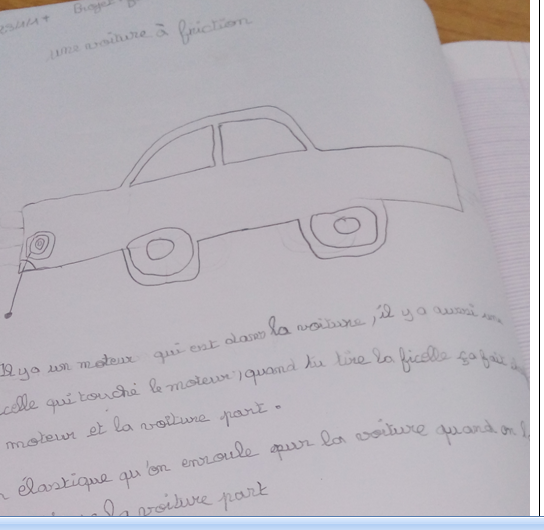 une voiture à friction
Il y a un moteur qui est dans la voiture, il y a aussi une
celle qui touche le moteur, quand tu tire la ficelle ça fait
moteur et la voiture part.
élastique qu'on enroule sur la voiture quand on l
la voiture part